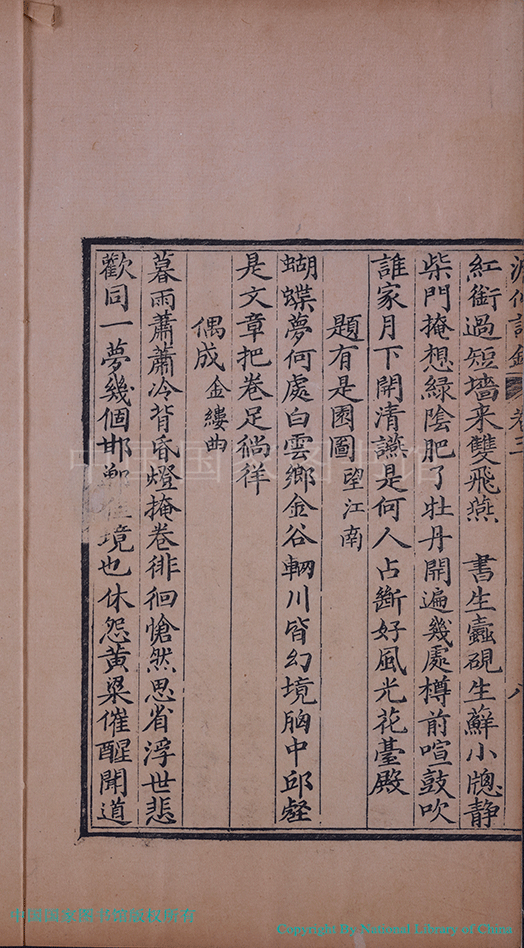 卷
八
紅銜過短墻来雙飛燕　書生蠧硯生蘚小牕静
柴門掩想緑陰肥了牡丹開遍幾處樽前喧鼓吹
誰家月下開清讌是何人占斷好風光花臺殿
題有是園圖 望江南
蝴蝶夢何處白雲鄉金谷輞川皆幻境胸中邱壑
是文章把卷足徜徉
偶成 金縷曲
暮雨蕭蕭冷背昏燈掩卷徘徊愴然思省浮世悲
歡同一夢幾個邯鄲境也休怨黄粱催醒聞道
中国国家图书馆
中国国家图书馆版权所有
Copyright By National Library of China